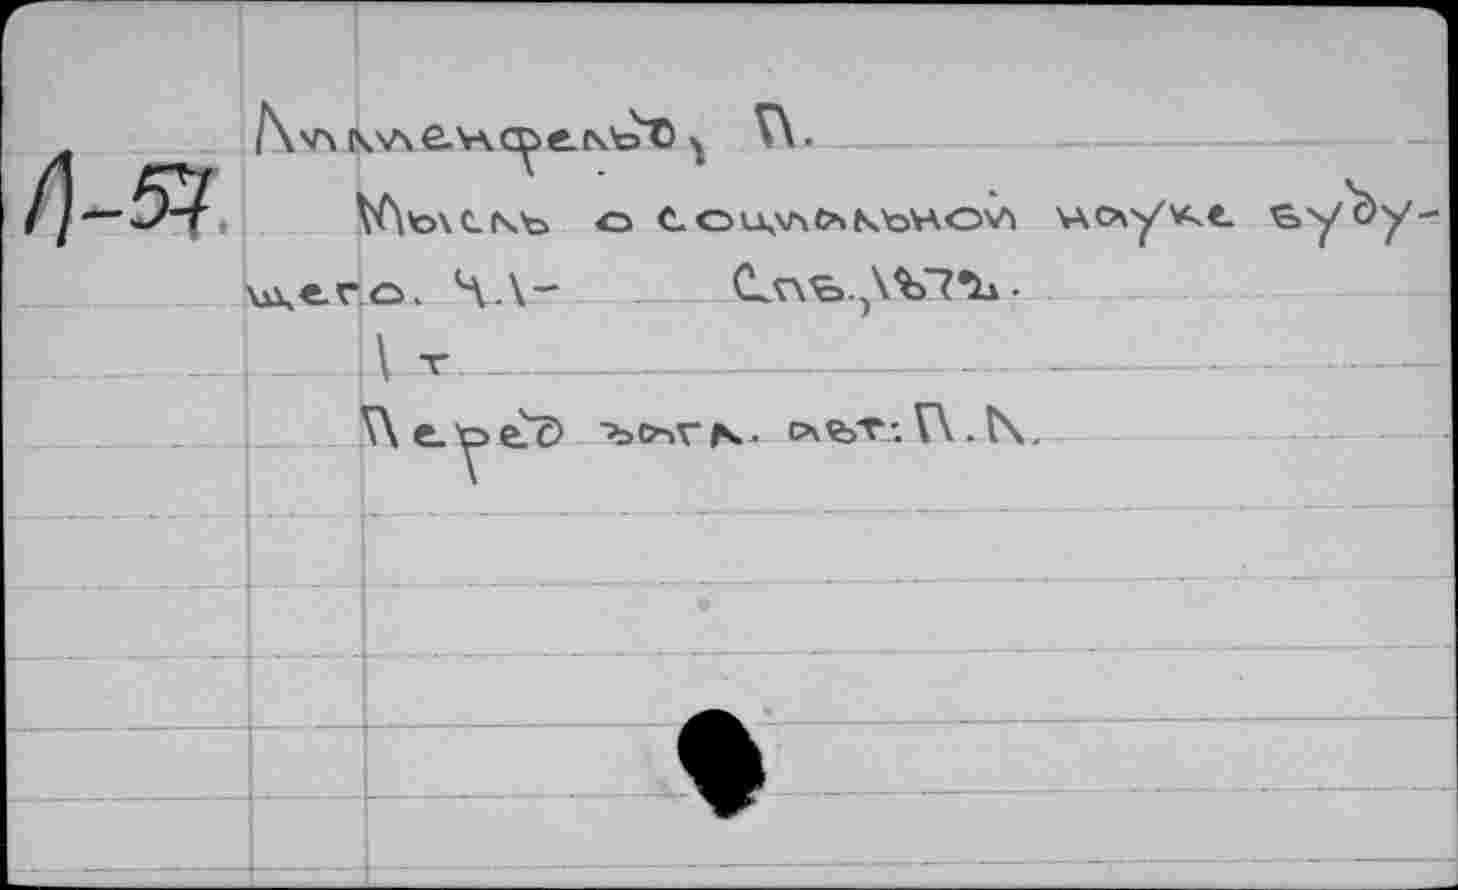 Лилиенфельд, П.
Л-57.
Мысль о социальной науке буду-
щего. Ч.1-
Спб., 1872.
1 т
Перед загл. авт: П. Л.